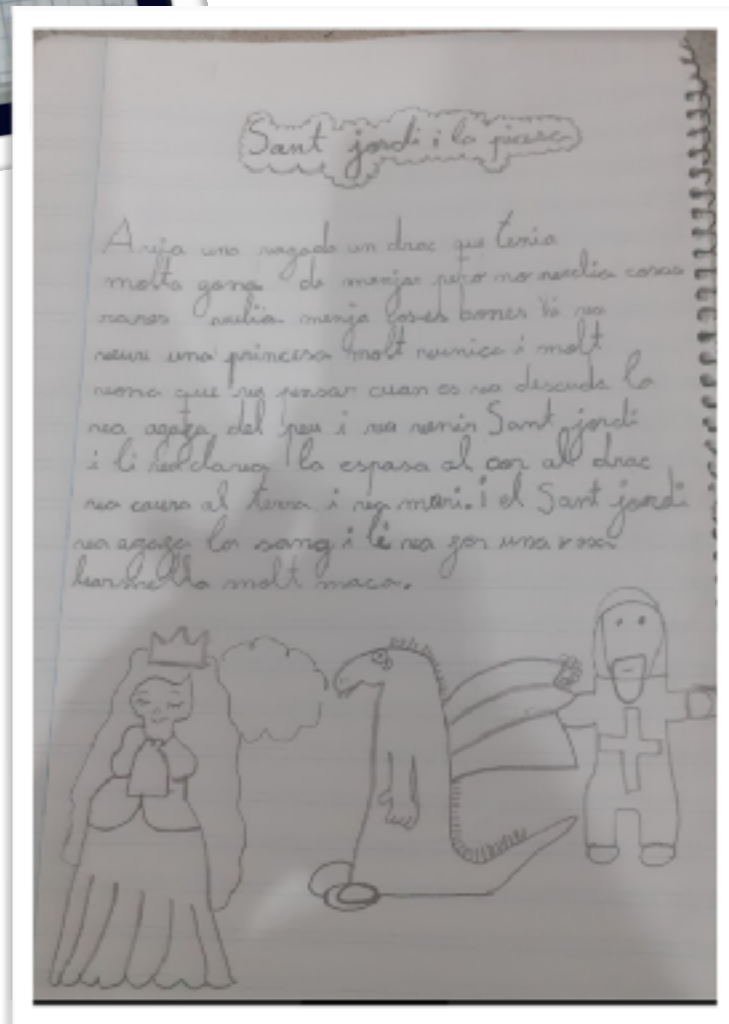 Sant jordi i la
Avia una vagada un drac que tenia
molta gana de menjar pero no veulia cosas
rares veulia menja coses bones hi va
veura una princesa molt veunica i molt
veona que va pensar cuan es va descuda la
va agafa del peu i va venir Sant jordi
i li va clavar la espasa al cor al drac
va caura al terra i va mori. i el Sant jordi
va agafa la sang i li va fer una rosa
barmella molt maca.